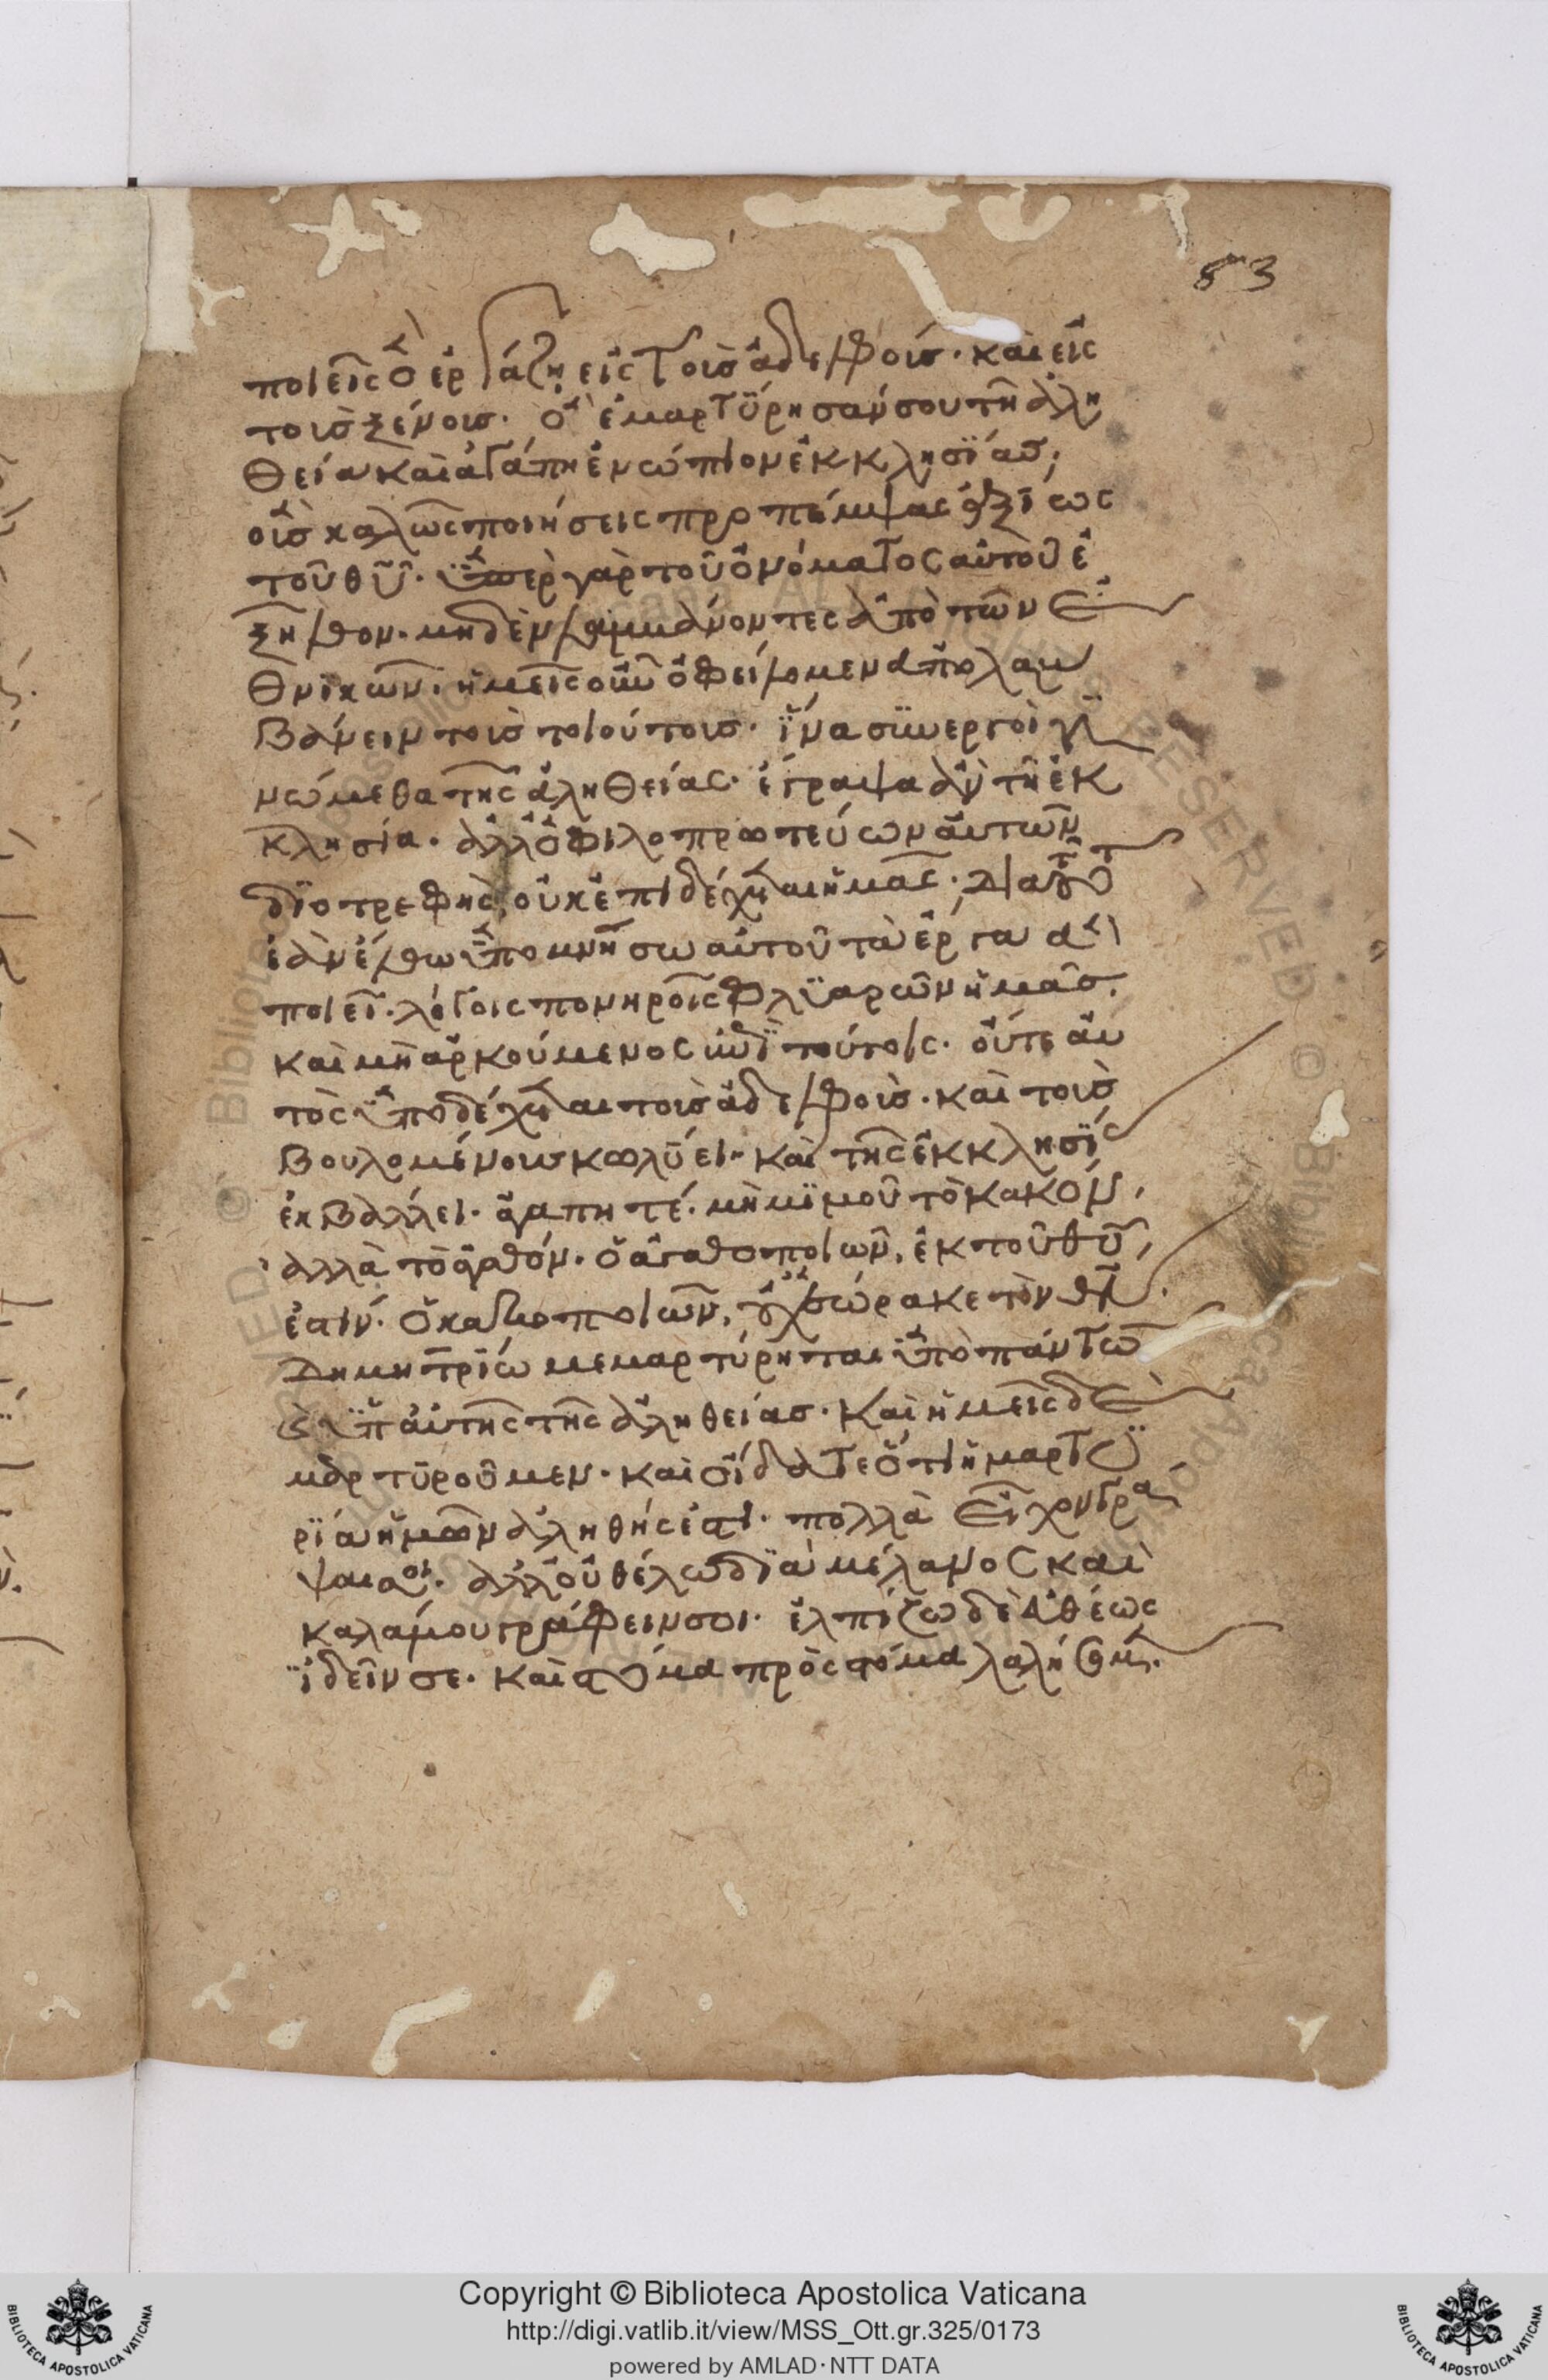 853
ποιεῖς ὃ ἐργάζη εἰς τοὺς ἀδελφούς· καὶ εἰς
τοὺς ξένους· οἳ ἐμαρτύρησάν σου τῇ ἀλη
θεία καὶ ἀγάπη ἐνώπιον ἐκκλησίας·
οὓς καλῶς ποιήσεις προπέμψας ἀξίως
τοῦ θῦ· ὑπὲρ γὰρ τοῦ ὀνόματος αὐτοῦ ἐ
ξῆλθον· μηδὲν λαμβάνοντες ἀπὸ τῶν ἐ
θνικῶν· ἡμεῖς οὖν ὀφείλομεν ἀπολαμ
βάνειν τοὺς τοιούτους· ἵνα συνεργοὶ γι
νώμεθα τῆς ἀληθείας· ἔγραψα ἂν τῇ ἐκ
κλησία· ἀλλ ὁ φιλοπρωτεύων αὐτῶν
διοτρεφὴς, οὐκ ἐπιδέχεται ἡμᾶς· διὰ τοῦτο
ἐὰν ἔλθω ὑπομνήσω αὐτοῦ τὰ ἔργα ἃ
ποιεῖ· λόγοις πονηροῖς φλυαρῶν ἡμᾶς·
καὶ μὴ ἀρκούμενος ἐπὶ τούτοις· οὔτε αὐ
τὸς ὑποδέχεται τοὺς ἀδελφοὺς· καὶ τοὺς
βουλομένους κωλύει· καὶ τῆς ἐκκλησίας
ἐκβάλλει· ἀγαπητέ· μὴ μιμοῦ τὸ κακόν,
ἀλλὰ τὸ ἀγαθόν· ὁ ἀγαθοποιῶν, ἐκ τοῦ θῦ,
ἐστίν· ὁ κακοποιῶν, οὐχ ἑώρακε τὸν θν·
Δημητρίω μεμαρτύρηται ὑπὸ πάντων
καὶ ὑπ αὐτῆς τῆς ἀληθείας· καὶ ἡμεῖς δὲ
μαρτυροῦμεν· καὶ οἴδατε ὅτι ἡ μαρτυ
ρία ἡμῶν ἀληθής ἐστι· πολλὰ εἶχον γρά
ψαι σοι· ἀλλ οὐ θέλω διὰ μέλανος καὶ
καλάμου γράφειν σοι· ἐλπίζω δὲ εὐθέως
ἰδεῖν σε· καὶ στόμα πρὸς στόμα λαλήσομεν·
Copyright © Biblioteca Apostolica Vaticana
http://digi.vatlib.it/view/MSS_Ott.gr.325/0173
powered by AMLAD·NTT DATA
BIBLIOTECA APOSTOLICA VATICANA
BIBLIOTECA APOSTOLICA VATICANA